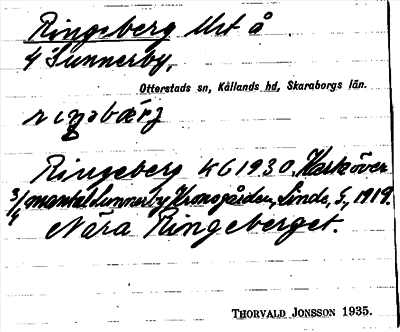 Ringeberg Urt å
4 Sunnerby,
Otterstads sn, Kållands hd, Skaraborgs län.
Ringeberg KG 1930. Karta över
3/4 mantal Sunnerby Kronogården, Linde, S., 1919.
Nära Ringeberget.
THORVALD JONSSON 1935.